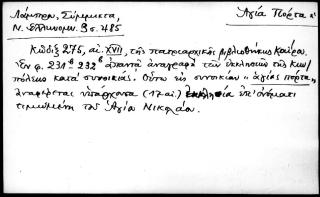 Λάμπρου, Σύμμικτα,
Ν. Ἑλληνομν. 9σ. 485
Ἁγία Πόρτα
Κῶδιξ 275, αἰ. XVII, τῆς πατριαρχικῆς βιβλιοθήκης Καΐρου.
Ἐν φ. 231 232 ἀπαντᾷ ἀναγραφὴ τῶν ἐκκλησιῶν τῆς Κων/
πόλεως κατὰ συνοικίας. Οὕτω εἰς συνοικίαν "ἁγίας πόρτα"
ἀναφέρεται ὑπάρχουσα (17 αἰ.) ἐκκλησία ἐπ' ὀνόματι
τιμωμένη τοῦ Ἁγίου Νικολάου.